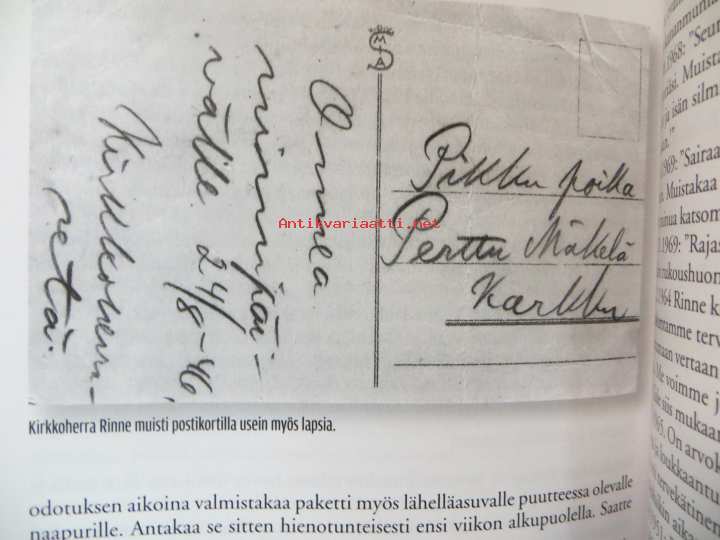 Onnea
nimipäi-
välle 24/8-46,
Kirkkoherra-
setä.
Pikku poika
Perttu Mäkelä
Karkku
Antikvariaatti.net
Kirkkoherra Rinne muisti postikortilla usein myös lapsia.
odotuksen aikoina valmistakaa paketti myös lähelläasuvalle puutteessa olevalle
naapurille. Antakaa se sitten hienotunteisesti ensi viikon alkupuolella. Saatte
1968: "Seur
Muista
ja isän silm
1969: "Sairaa
Muistakaa
katsom
1969: "Rajas
rukoushuon
1964 Rinne k
terv
vertaan
Me voimme j
siis mukaan
On arvok
loukkaantu
tervekätinen